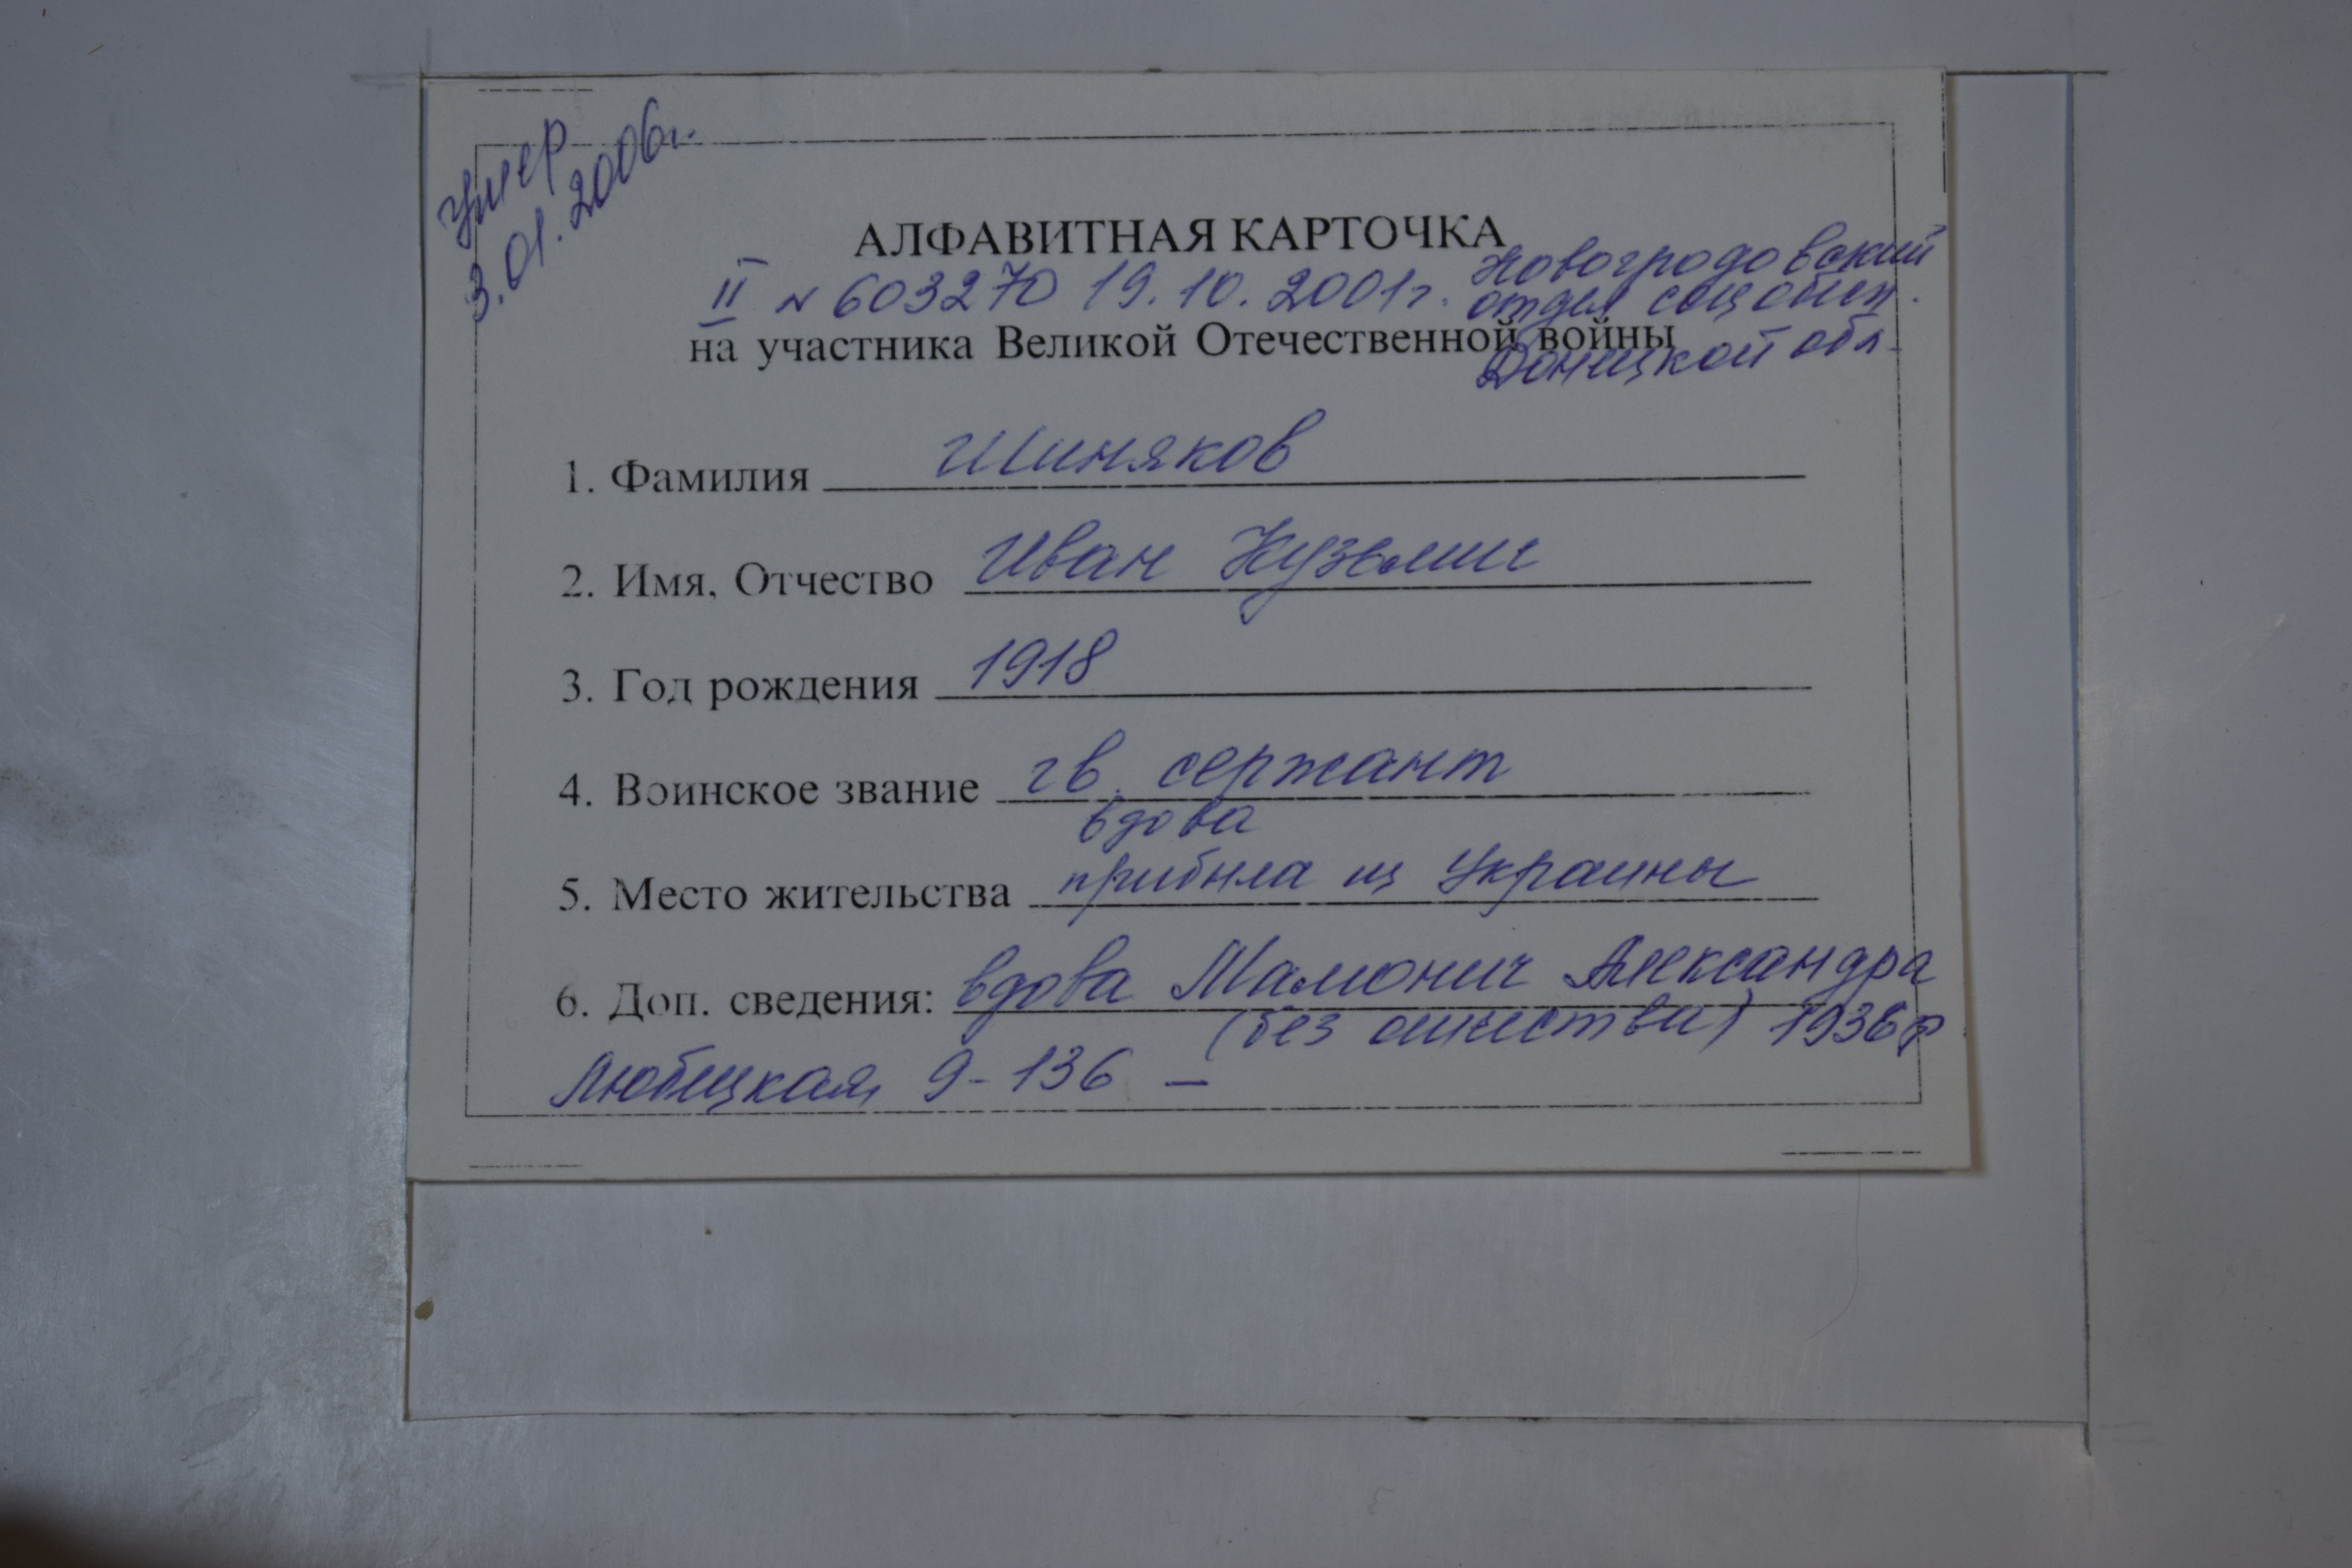 умер
3.01.2006г.
АЛФАВИТНАЯ КАРТОЧКА
II N 603270 19.10.2001г. Новогродовский
отдел соц обесп.
на участника Великой Отечественной войны
Донецкой обл.
1. Фамилия Шиняков
2. Имя, Отчество Иван Кузьмич
3. Год рождения 1918
4. Воинское звание гв. сержант
вдова
5. Место жительства прибыла из Украины
6. Доп. сведения: вдова Мамонич Александра
(без отчества) 1936 р
Любецкая 9-136 –